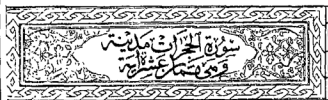 سورة الحجرات مدنية
وهي ثمان عشرة آية